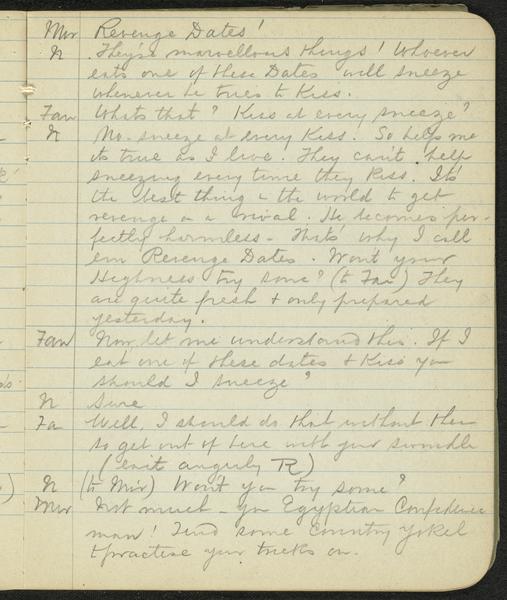 Mir Revenge Dates!
N They're marvellous things! Whoever
eats one of these Dates will sneeze
whenever he tries to Kiss.
Fan Whats that? Kiss at every sneeze?
N No- sneeze at every Kiss. So help me
its true as I live. They can't help
sneezing every time they Kiss. It's
the best thing in the world to get
revenge on a rival. He becomes per-
fectly harmless - That's why I call
em Revenge Dates. Won't your
Highness try some? (to Fan) They
are quite fresh & only prepared
yesterday.
Fan Now let me understand this. If I
eat one of these dates & Kiss you
should I sneeze?
N Sure
Fa Well, I should do that without them
so get out of here with your swindle
(exit angrily R)
N (to Mir) Won't you try some?
Mir Not much - you Egyptian Confidence
man! Find some Country yokel
& practise your tricks on.